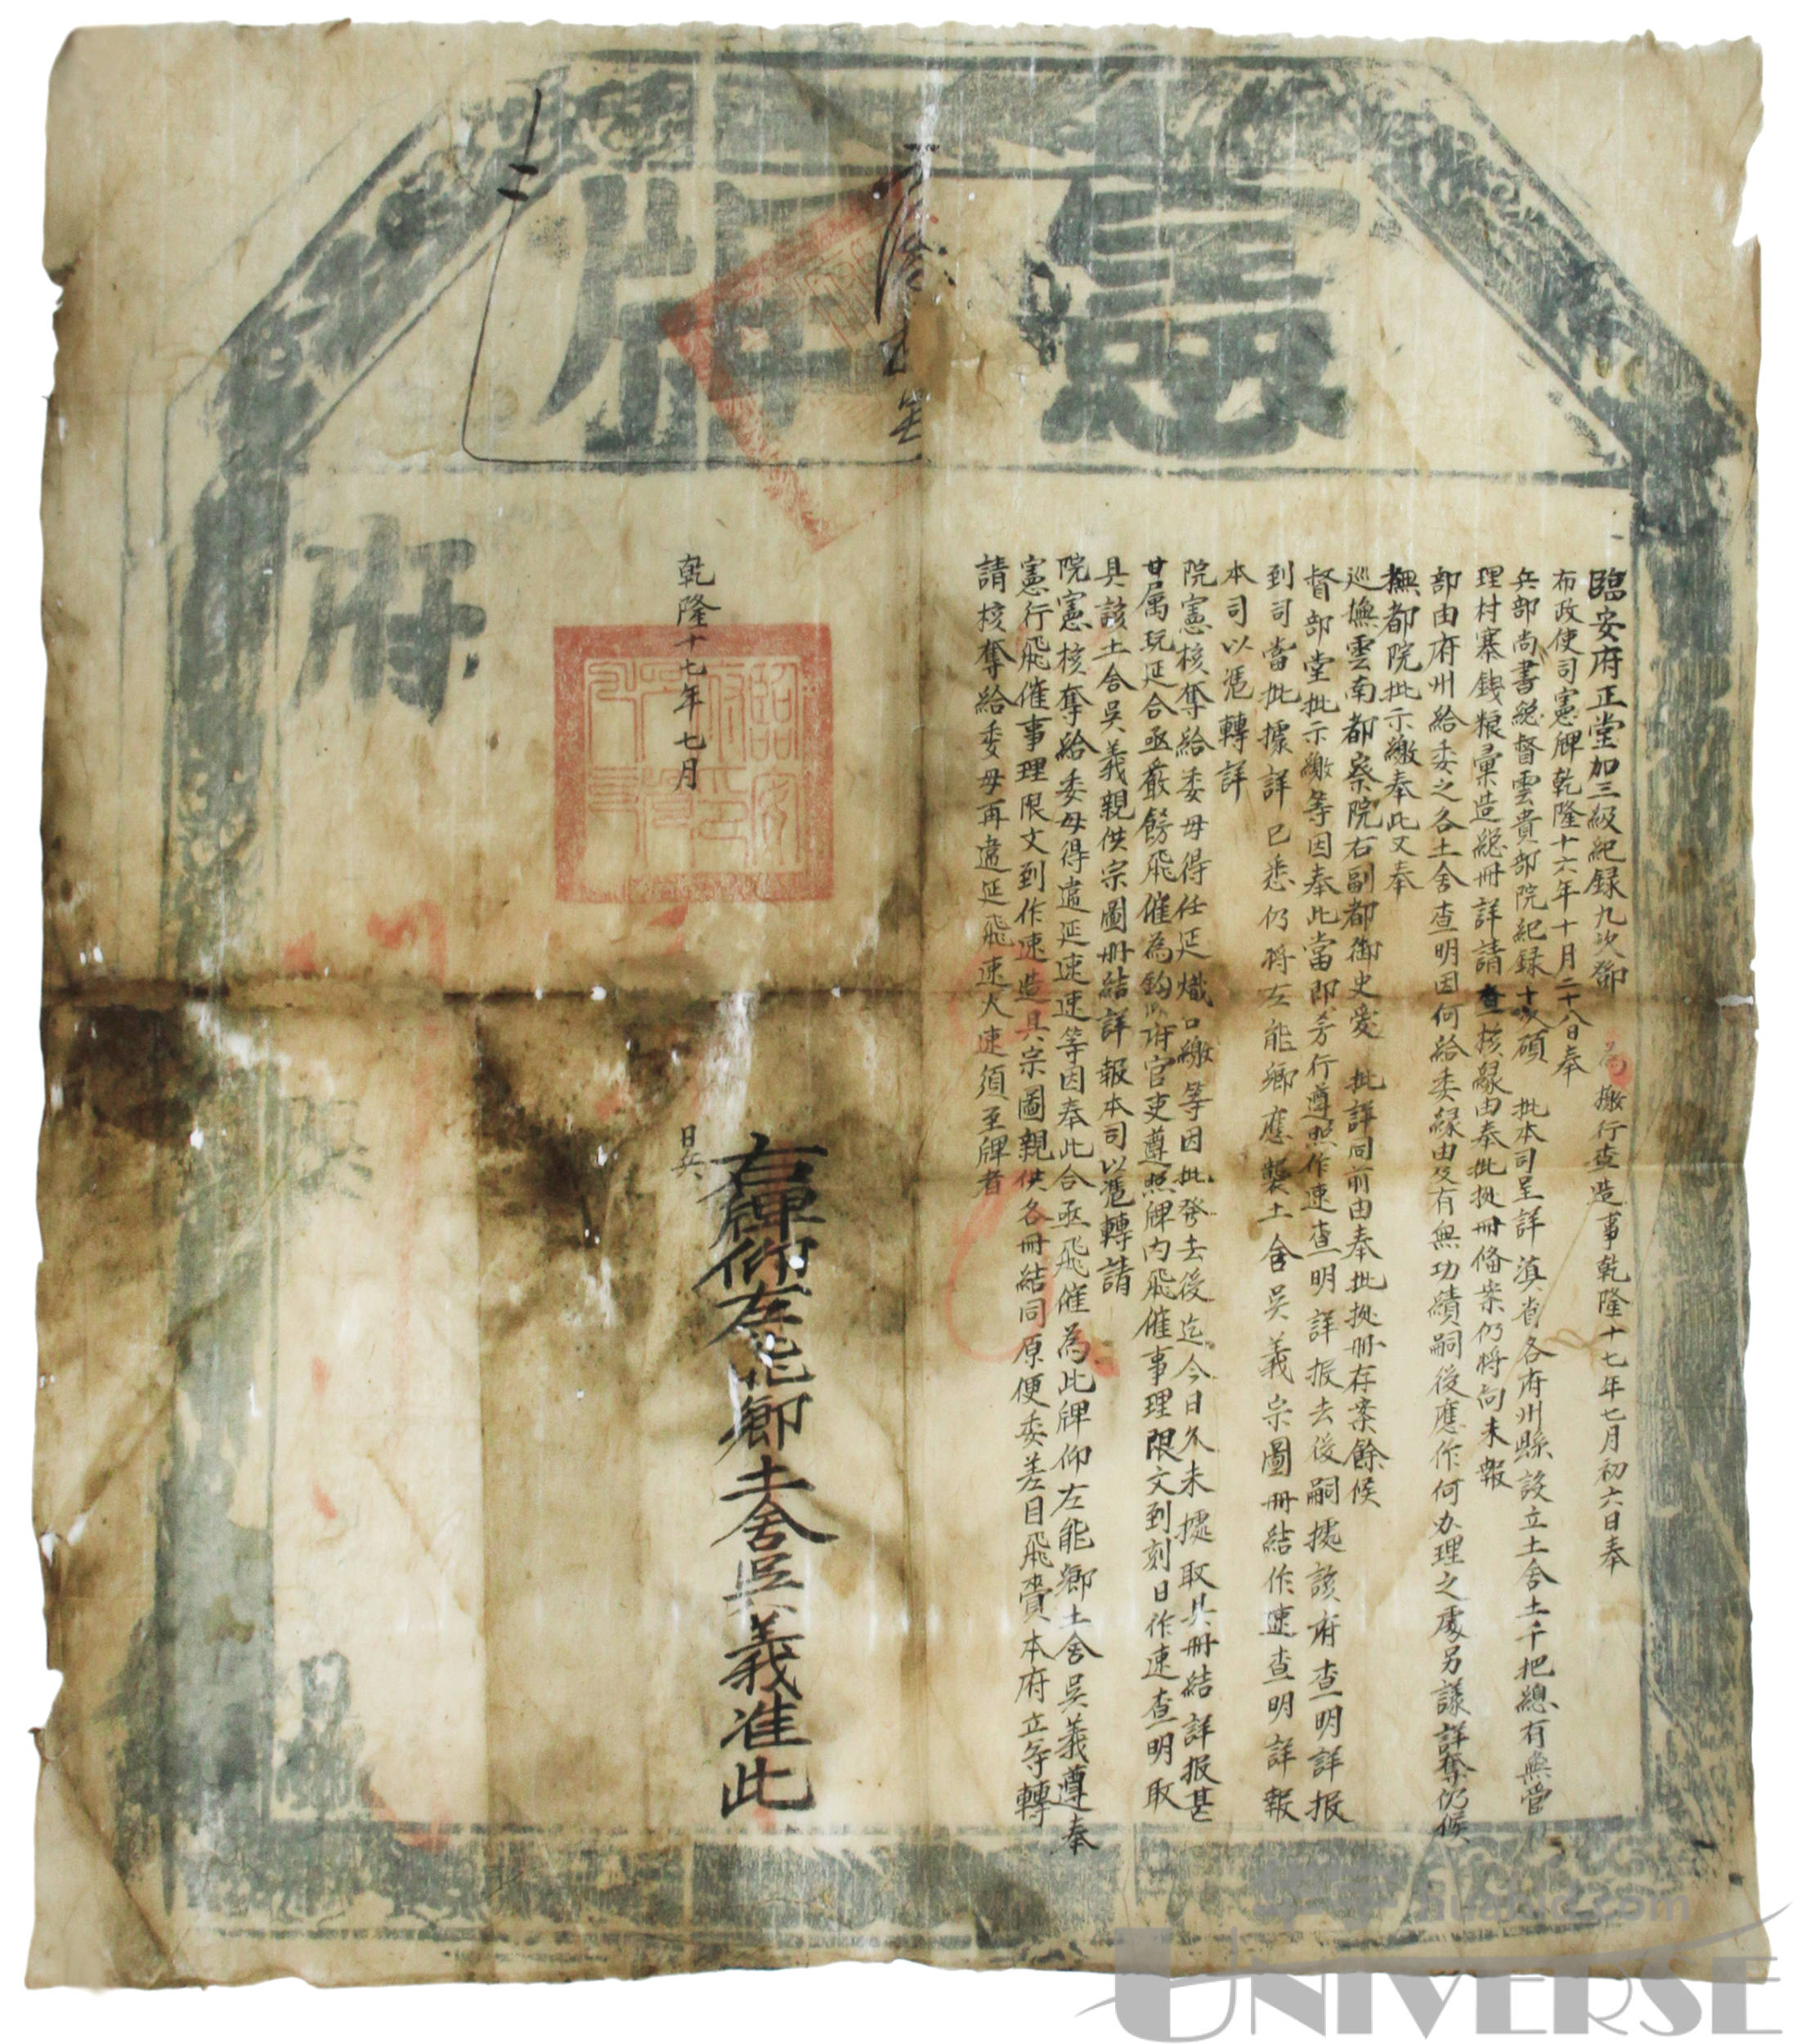 憲牌
臨安府正堂加三級紀録九次鄒 為檄行查造事乾隆十七年七月初六日奉
布政使司憲牌乾隆十六年十月二十八日奉
兵部尚書総督雲貴部院紀録十次碩 批本司呈詳滇省各府州縣設立土舍土千把總有無管
理村寨錢粮彙造総冊詳請查核縁由奉批拠冊俻案仍将向未報
部由府州給委之各土舍查明因何給委縁由及有無功績嗣後應作何办理之處另議詳奪仍候
撫都院批示繳奉此又奉
巡撫雲南都察院右副都御史愛 批詳同前由奉批拠冊存案餘候
督部堂批示繳等因奉此當即芳行遵照作速查明詳报去後嗣據該府查明詳报
到司當批據詳已悉仍将左能鄉應襲土舍吳義宗圖冊結作速查明詳報
本司以憑轉詳
院憲核奪給委毋得任延熾口繳等因批發去後迄今日久未據取具冊結詳报甚
甘属玩延合亟嚴飭飛催為牌府官吏遵照牌内飛催事理限文到刻日作速查明取
具該土舍吳義親供宗圖冊結詳報本司以憑轉請
院憲核奪給委毋得遲延速速等因奉此合亟飛催為此牌仰左能鄉土舍吳義遵奉
憲行飛催事理限文到作速造具宗圖親供各冊結同原便委差目飛賫本府立等轉
請核奪給委毋再遲延飛速火速須至牌者
右牌仰左能鄉土舍吳義准此
乾隆十七年七月 日兵
臨安府印
府